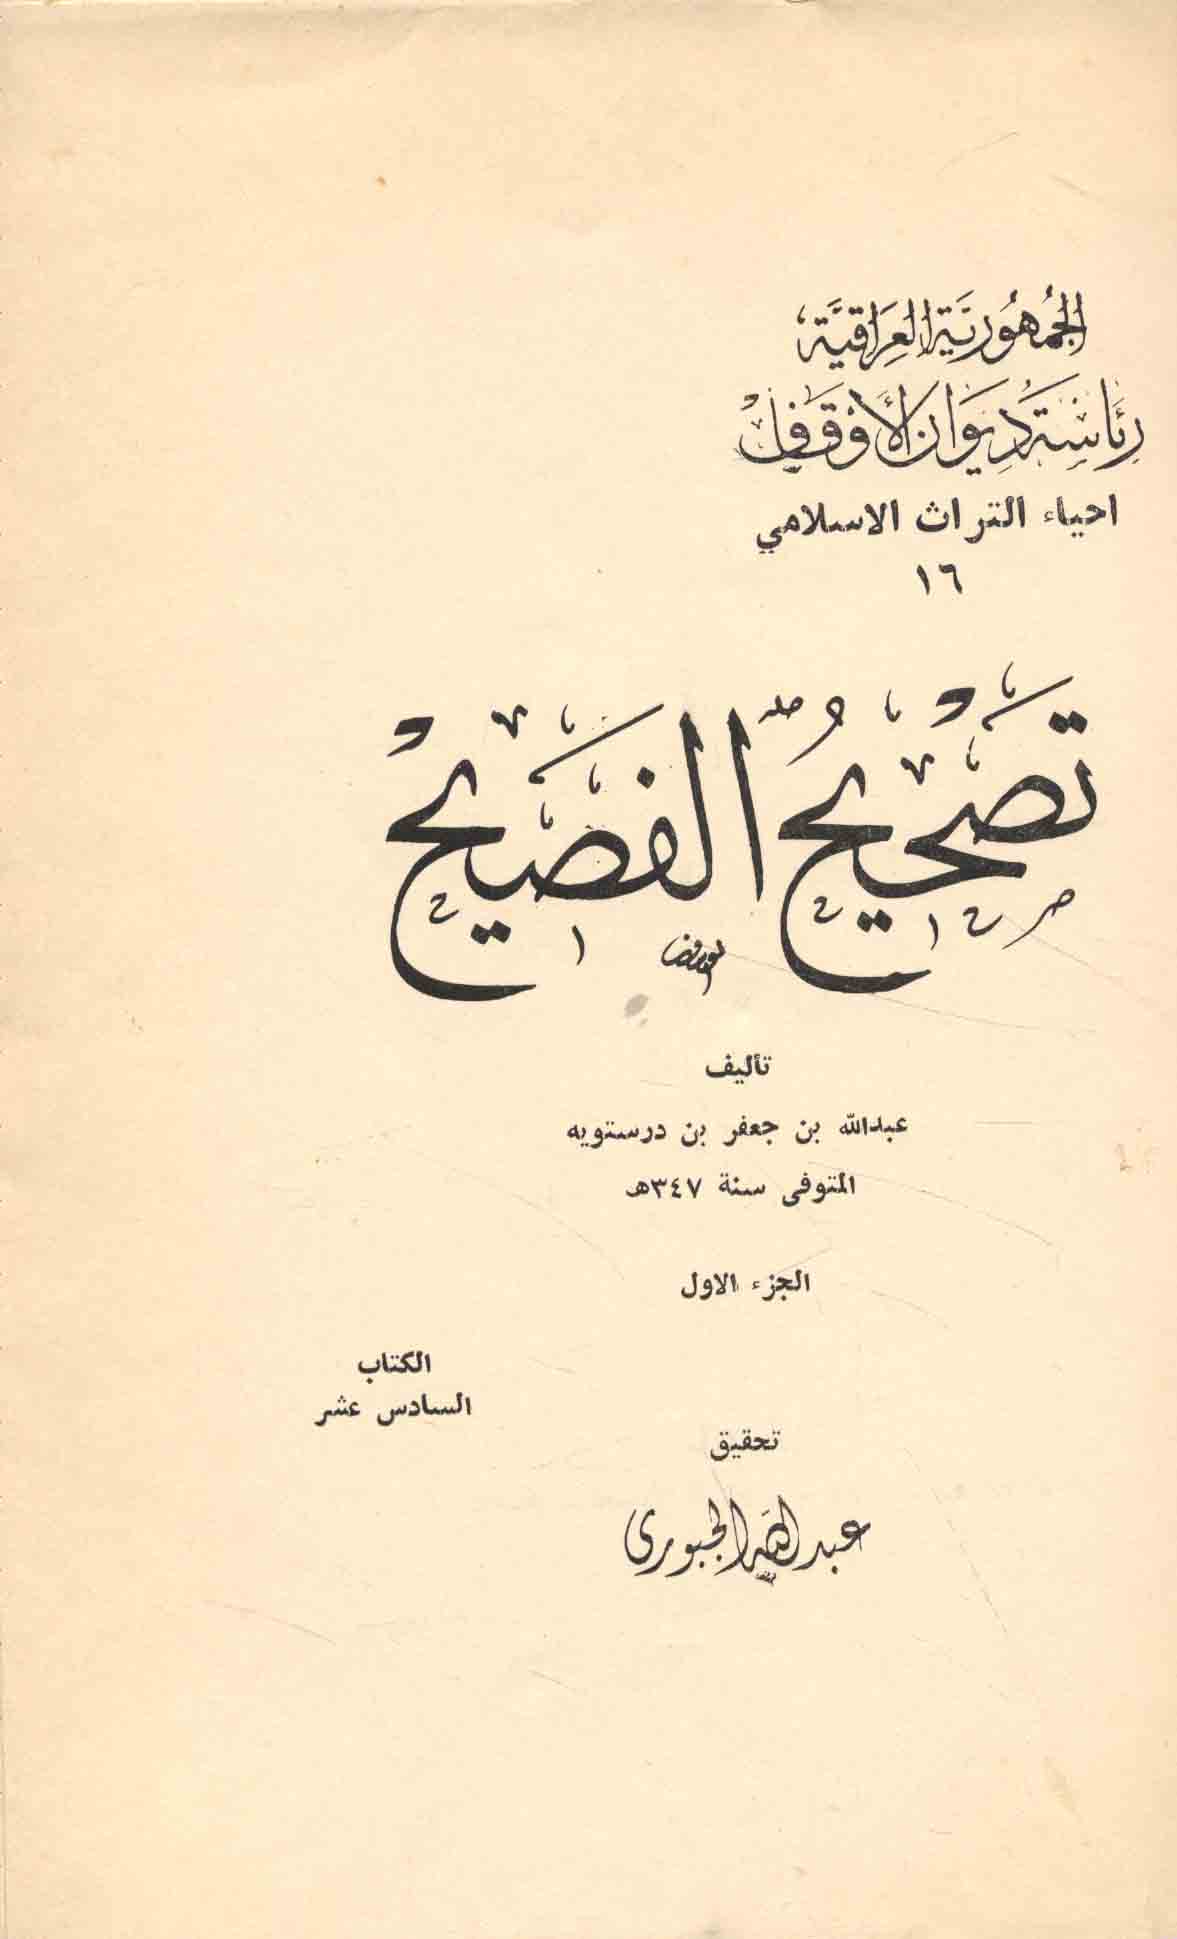 الجُمهُوريَّة العِرَاقيَّة
رئَاسَة ديوَان الأوقَاف
احياء التراث الاسلامي
١٦
تصَحْيحُ الفَصَيحْ
تأليف
عبدالله بن جعفر بن درستويه
المتوفى سنة ٣٤٧هـ
الجزء الاول
الكتاب
السادس عشر
تحقيق
عبد الله الجبوري